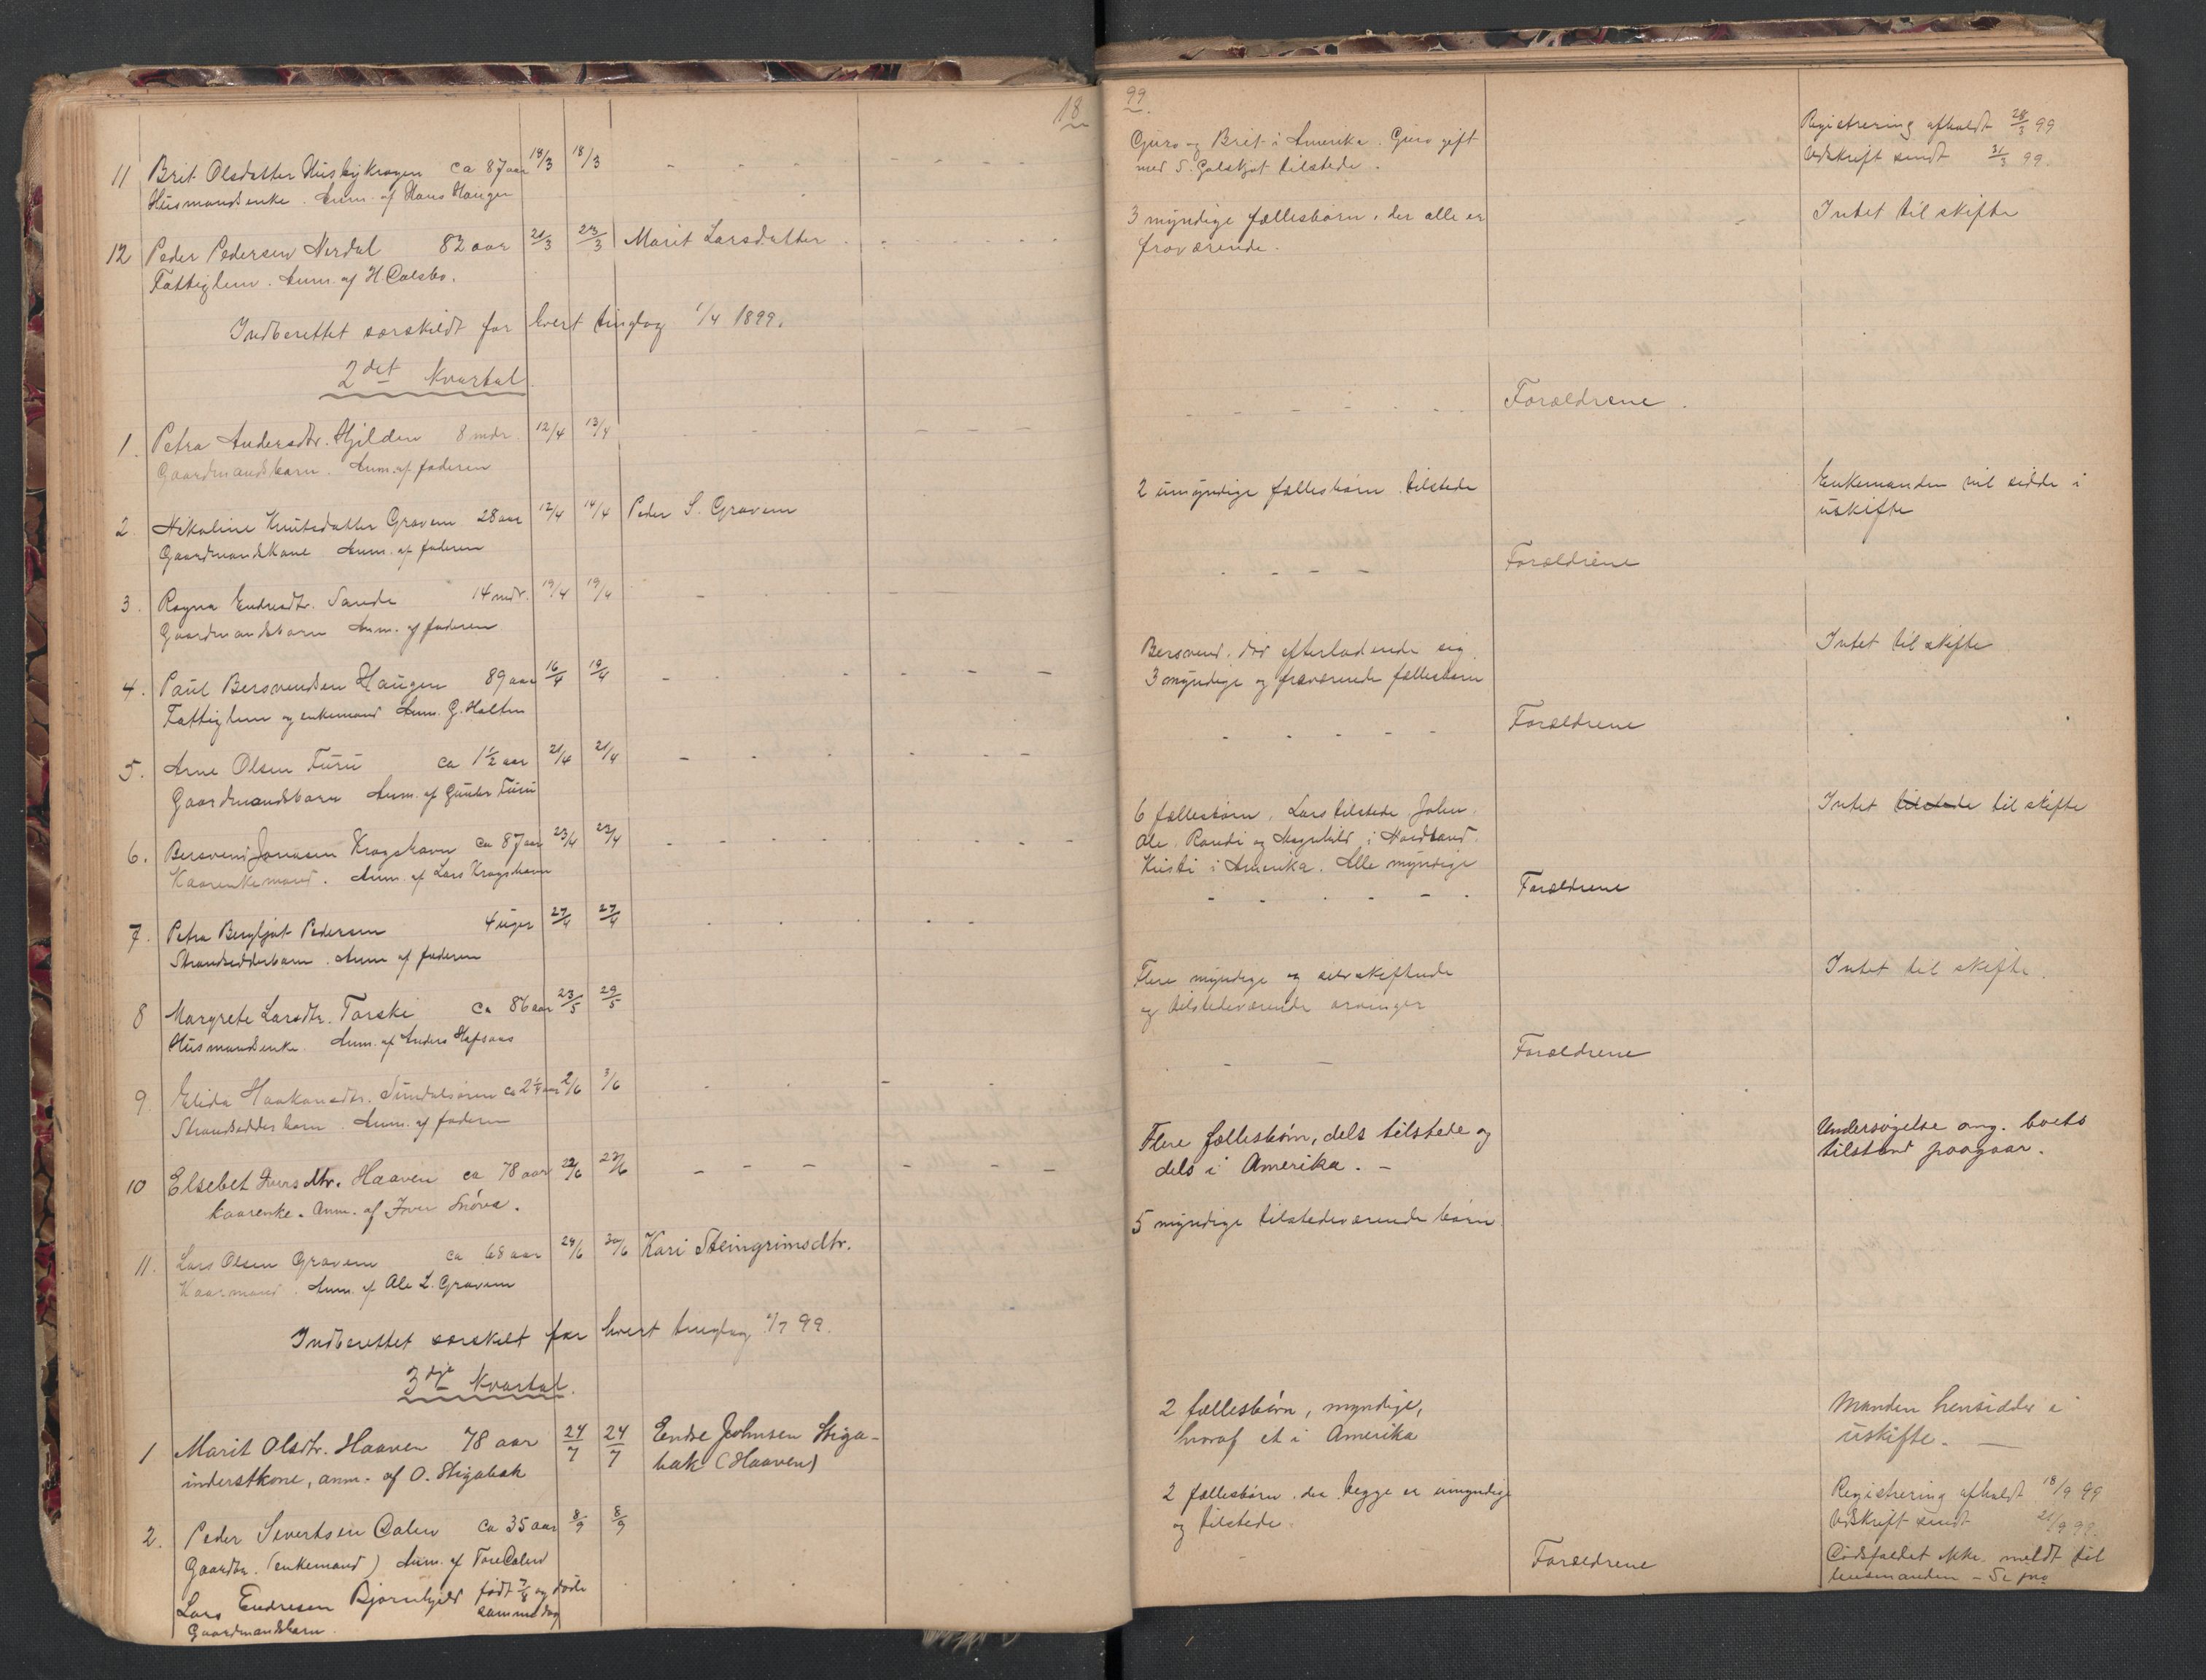 18
11 Brit Olsdatter Husbykragen ca 87 aar 18/3 18/3 - - - - - -
Husmandsenke. Anm. af Hans Haugen
12 Peder Pedersen Nerdal 82 aar 21/3 23/3 Marit Larsdatter
Fattiglem. Anm. af H Calsbo.
Indberettet særskildt for hvert tinglag 1/4 1899.
2det Kvartal
1. Petra Andersdtr. Hjilden 8 mdr. 12/4 13/4
Gaardmandsbarn. Anm. af faderen
2 Nikoline Knutsdatter Gravem 28 aar 12/4 14/4 Peder S. Gravem
Gaardmandskone Anm. af faderen
3. Ragna Endresdtr. Sande 14 mdr. 19/4 19/4
Gaardmandsbarn Anm. af faderen
4. Paul Bersvendsen Haugen 89 aar 16/4 19/4 - - - - - -
Fattiglem og enkemand Anm. G. Holten
5. Arne Olsen Furu ca 1½ aar 21/4 21/4 - - - - - -
Gaardmandsbarn Anm. af Gunder Furu
6. Bersvend Jonasen Kragshavn ca 87 aar 23/4 23/4 - - - - - -
Kaarenkemand. Anm. af Lars Kragshavn
7. Petra Bergljot Pedersen 4 uger 27/4 27/4
Strandsidderbarn. Anm af faderen
8 Margrete Larsdtr. Torske ca 86 aar 23/5 29/5
Husmandsenke. Anm. af Anders Hafsaas
9. Elida Haakonsdtr. Sundalsøren ca 2¼ aar 2/6 3/6
Strandsidderbarn. Anm. af faderen
10 Elsebet Iversdtr. Haaven ca 78 aar 22/6 23/6 - - - - - -
kaarenke. Anm. af Iver Snøva.
11. Lars Olsen Gravem ca 68 aar 29/6 30/6 Kari Steingrimsdtr.
Kaarmand. Anm. af Ole L. Gravem
Indberettet særskilt for hvert tinglag 1/7 99.
3dje Kvartal.
1 Marit Olsdtr. Haaven 78 aar 24/7 24/7 Endre Johnsen Stiga-
inderstkone, anm. af O. Stigabak bak (Haaven)
2. Peder Sivertsen Dalen ca 35 aar 8/9 8/9
Gaardbr. (enkemand) Anm. af Tore Dalen
Lars Endresen Bjørnhjell født 7/8 og døde
samme dag
Gaardmandsbarn.
99.
Guro og Brit i Amerika. Guro gift Registrering afholdt 28/3 99
med S. Galskjøt tilstede. Udskrift sendt 31/3 99.
3 myndige fællesbørn, der alle er Intet til skifte
fraværende.
Forældrene.
2 umyndige fællesbørn tilstede Enkemanden vil sidde i
uskifte
Forældrene
Bersvend. død efterladende sig Intet til skifte
3 myndige og fraværende fællesbørn
Forældrene
6 fællesbørn. Lars tilstede John. Intet tilstede til skifte
Ole. Randi og Magnhild i Nordland.
Kristi i Amerika. Alle myndige
Forældrene
Flere myndige og selvskiftende Intet til skifte.
og tilstedeværende arvinger
Forældrene
Flere fællesbørn, dels tilstede og Undersøgelse ang. boets
dels i Amerika. - tilstand paagaar.
5 myndige tilstedeværende børn.
2 fællesbørn, myndige, Manden hensidder i
hvoraf et i Amerika uskifte. -
2 fællesbørn. der begge er umyndige Registrering afholdt 18/9 99
og tilstede. Udskrift sendt 21/9 99.
Forældrene Dødsfaldet ikke meldt til
lensmanden - Se